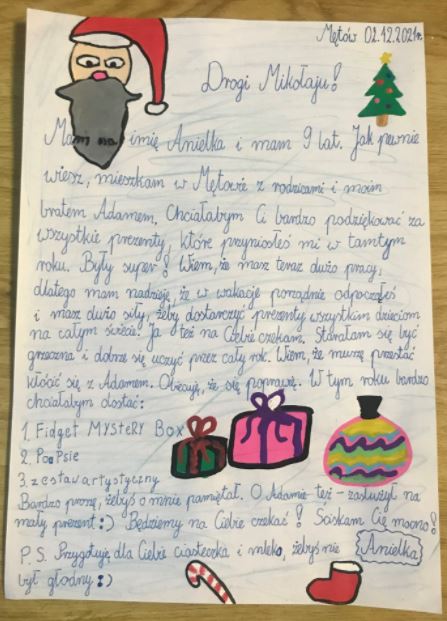 Mętów 02.12.2021r.
Drogi Mikołaju!
Mam na imię Anielka i mam 9 lat. Jak pewnie
wiesz, mieszkam w Mętowie z rodzicami i moim
bratem Adamem. Chciałabym Ci bardzo podziękować za
wszystkie prezenty, które przyniosłeś mi w tamtym
roku. Były super! Wiem, że masz teraz dużo pracy,
dlatego mam nadzieję, że w wakacje porządnie odpocząłeś
i masz dużo siły, żeby dostarczyć prezenty wszystkim dzieciom
na całym świecie. Ja też na Ciebie czekam. Starałam się być
grzeczna i dobrze się uczyć przez cały rok. Wiem, że muszę przestać
kłócić się z Adamem. Obiecuję, że się poprawię. W tym roku bardzo
chciałabym dostać:
1. Fidget MYSteRY Box
2. PooPsie
3. zestaw artystyczny
Bardzo proszę, żebyś o mnie pamiętał. O Adamie też - zasłużył na
mały prezent :) Będziemy na Ciebie czekać! Ściskam Cię mocno!
Anielka
P.S. Przygotuję dla Ciebie ciasteczka i mleko, żebyś nie
był głodny :)